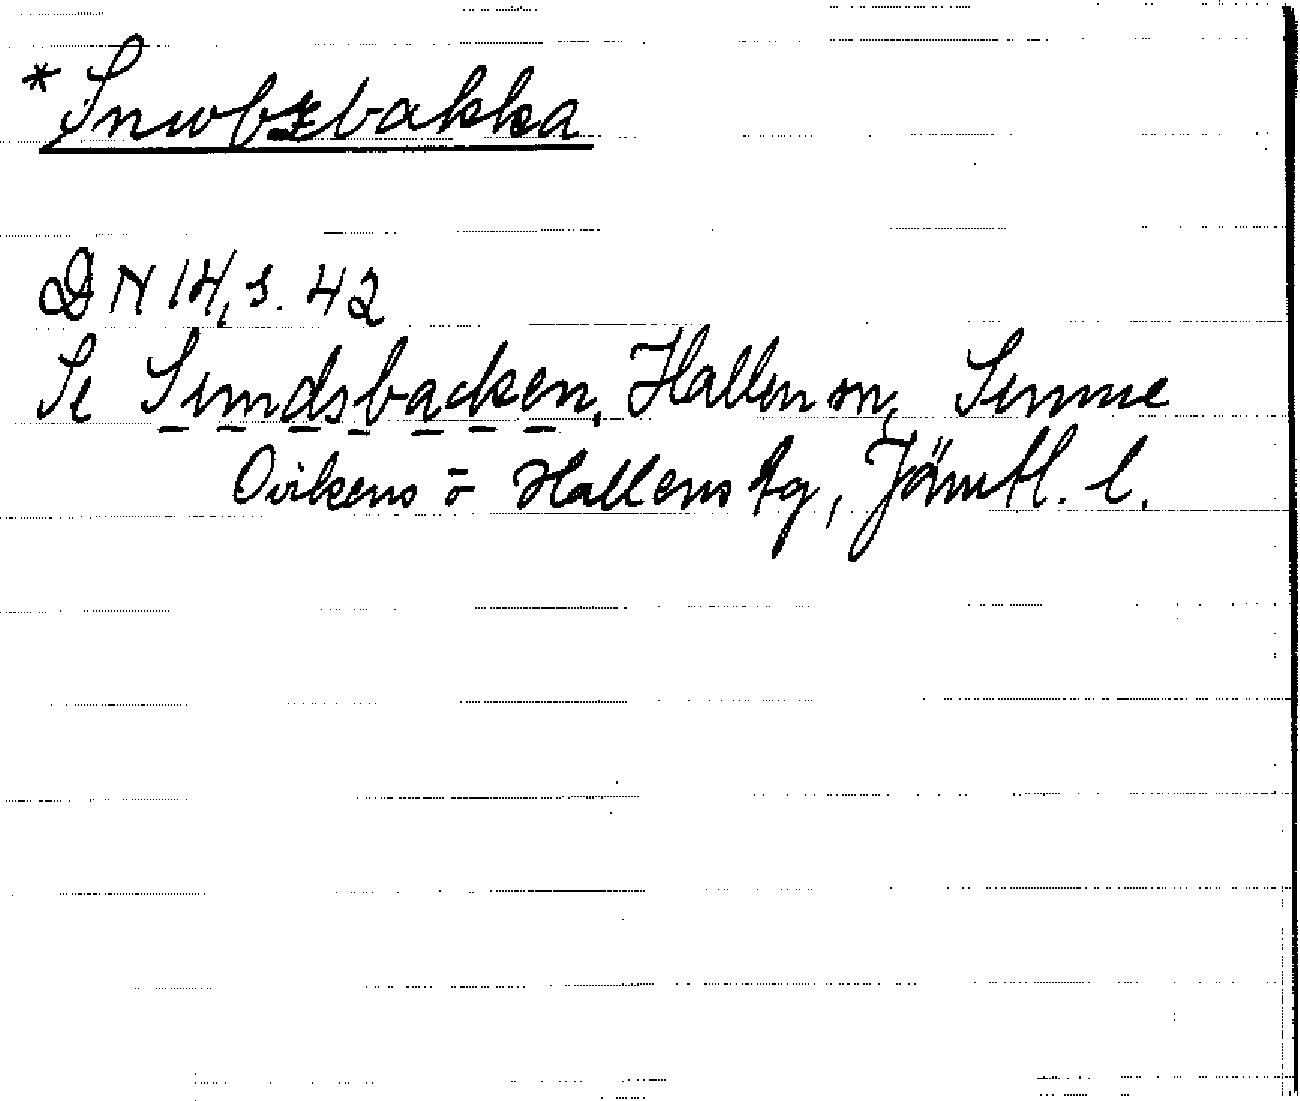 * Snwbzbakka
DN 14, s. 42
Se Sundsbacken, Hallen sn, Sunne
Ovikens o Hallens tg, Jämtl. l.